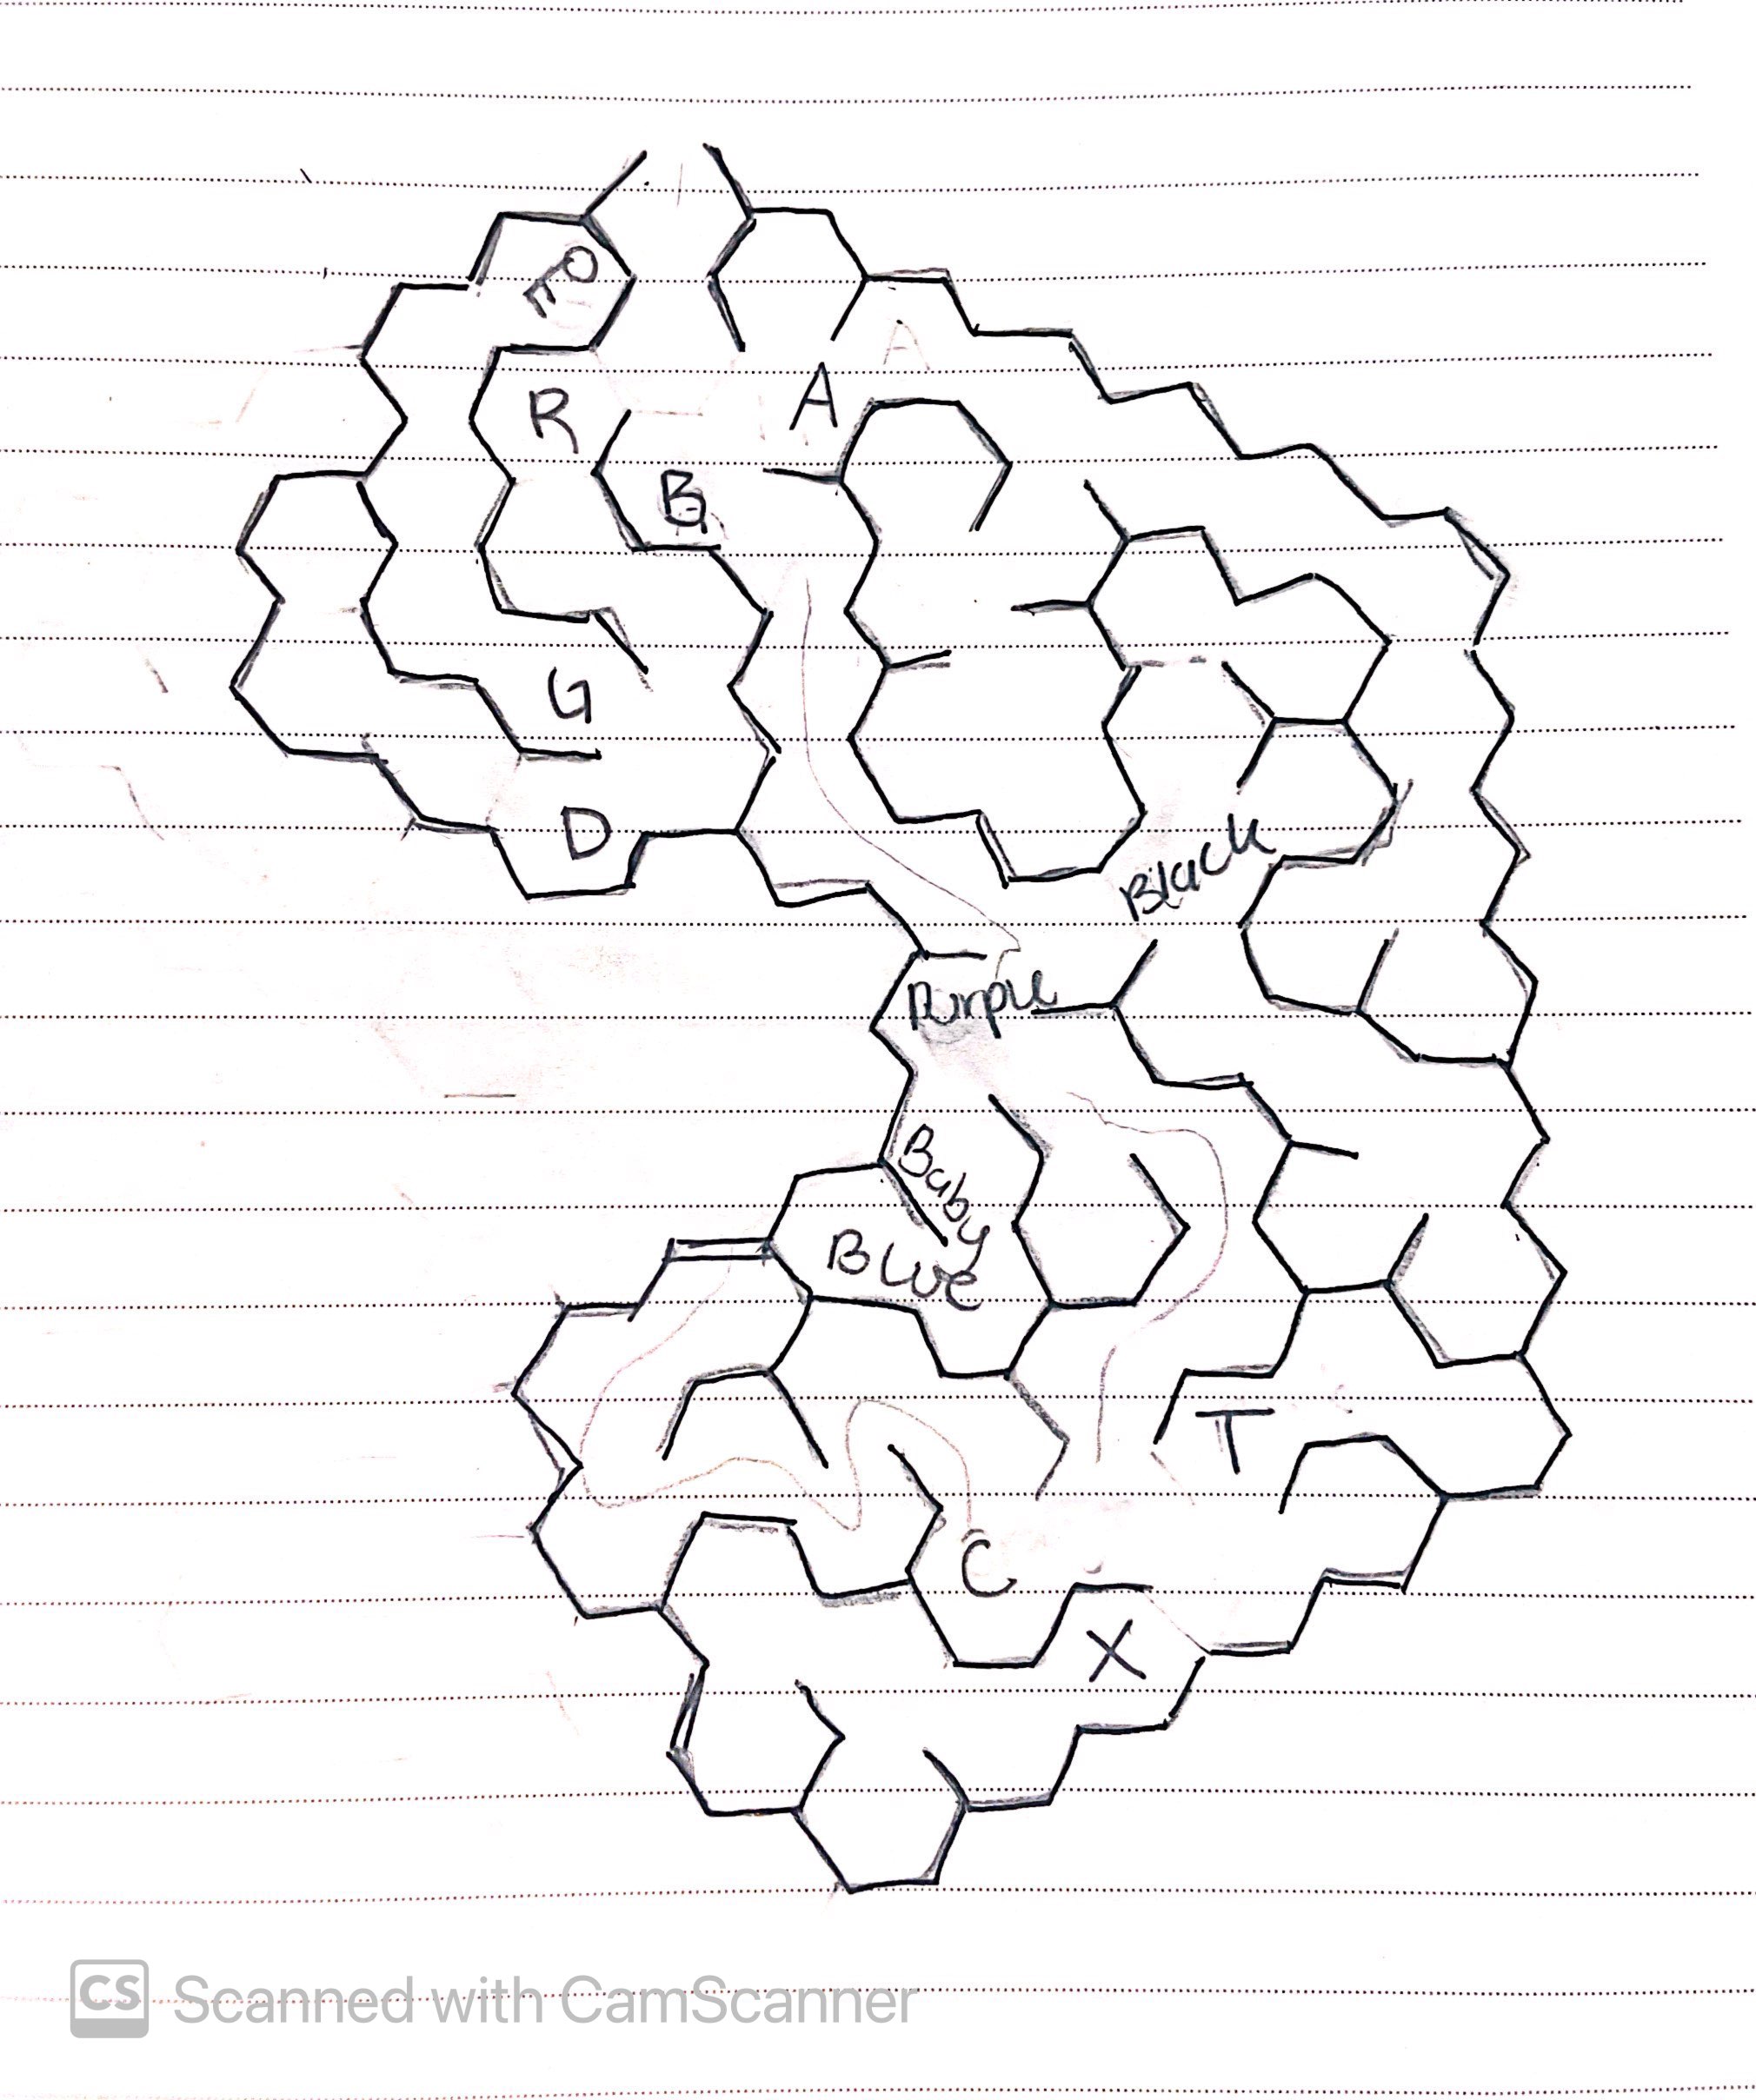 A
A
R
B
G
D
Black
Purple
Baby
BLue
T
C
X
CS Scanned with CamScanner